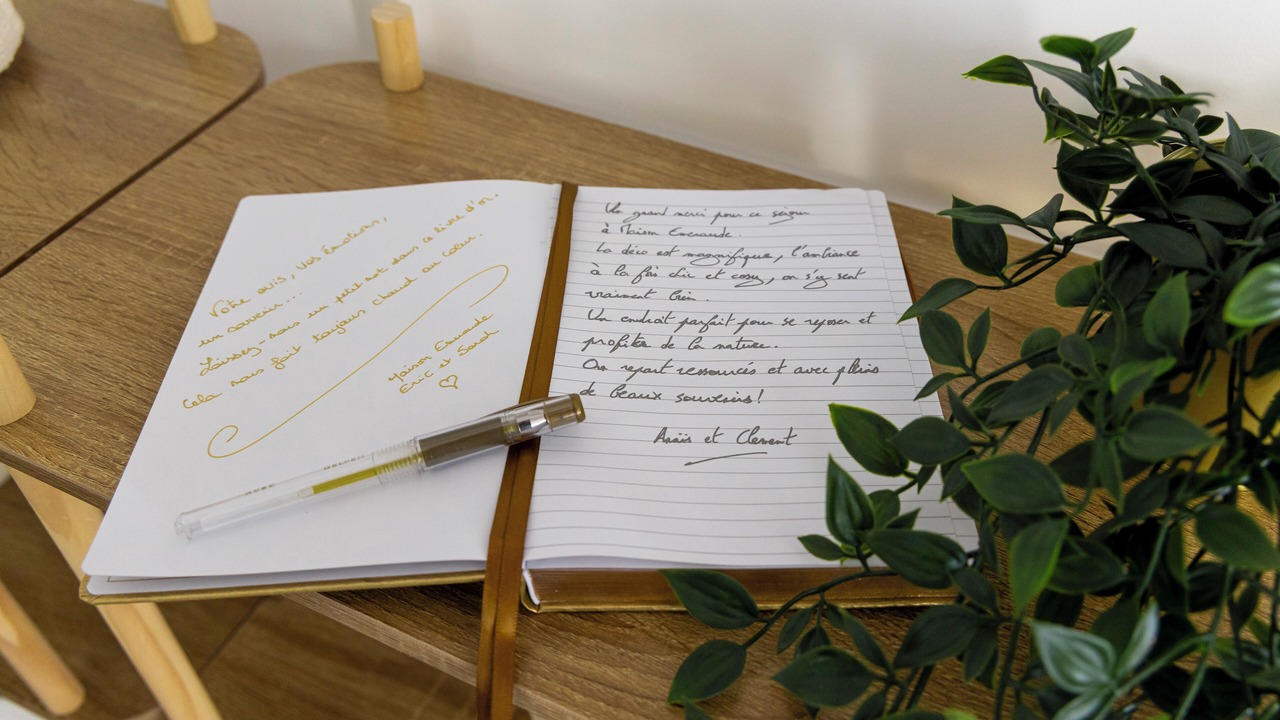 Votre avis, vos émotions,
un souvenir...
Laissez-nous un petit mot dans ce livre d'or.
Cela nous fait toujours chaud au cœur.
Maison Emeraude
Eric et Sarah
Un grand merci pour ce séjour
à Maison Emeraude.
La déco est magnifique, l'ambiance
à la fois chic et cosy, on s'y sent
vraiment bien.
Un endroit parfait pour se reposer et
profiter de la nature.
On repart ressourcés et avec pleins
de beaux souvenirs !
Anaïs et Clément